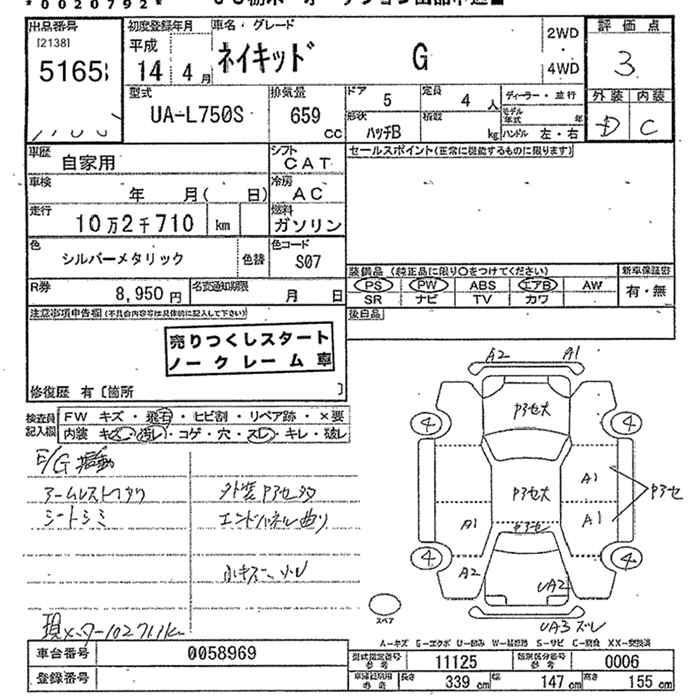 *0020792*
出品番号 初度登録年月 車名・グレード 2WD 評価点
[2138] 平成 ネイキッド G ・
5165 14 4月 4WD 3
型式 排気量 ドア 5 定員 4人 ディーラー・並行 外装 内装
UA-L750S 659 cc 形状 ハッチB 積載 kg モデル年式 年 D C
ハンドル 左・右
車歴 自家用 シフト CAT セールスポイント(正常に機能するものに限ります)
車検 年 月( 日) 冷房 AC
走行 10万2千710 km 燃料 ガソリン
色 シルバーメタリック 色替 色コード S07
装備品(純正品に限り○をつけてください) 新車保証書
R券 8,950円 名変通知期限 月 日 PS PW ABS エアB AW 有・無
SR ナビ TV カワ
注意事項申告欄(不具合内容等は具体的に記入して下さい) 後日品
売りつくしスタート
ノークレーム車
修復歴 有〔箇所 〕
検査員記入欄 FW キズ・飛石・ヒビ割・リペア跡・×要
内装 キズ・汚レ・コゲ・穴・スレ・キレ・破レ
E/G
シートシミ エンドパネル曲り
現メーター102711km
A2 A1
4 4
A1
A1 A1
4 4
A2 UA2
スペア
UA3 ズレ
A-キズ G-エクボ U-凹ミ W-補修跡 S-サビ C-腐食 XX-交換済
車台番号 0058969 型式指定番号 参考 11125 類別区分番号 参考 0006
登録番号 参考 長さ 339 cm 幅 147 cm 高さ 155 cm